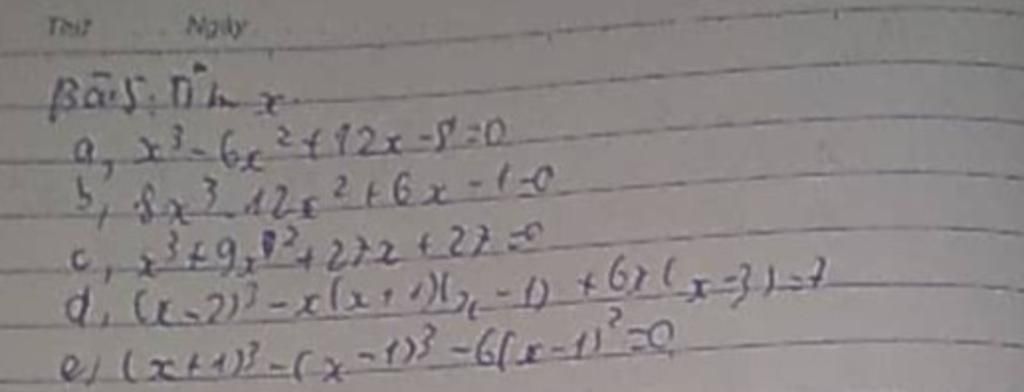 Thứ Ngày
Bài 5: Tìm x
a, x³ - 6x² + 12x - 8 = 0
b, 8x³ - 12x² + 6x - 1 = 0
c, x³ + 9x² + 27x + 27 = 0
d, (x - 2)³ - x(x + 1)(x - 1) + 6x(x - 3) = 7
e, (x + 1)³ - (x - 1)³ - 6(x - 1)² = 0